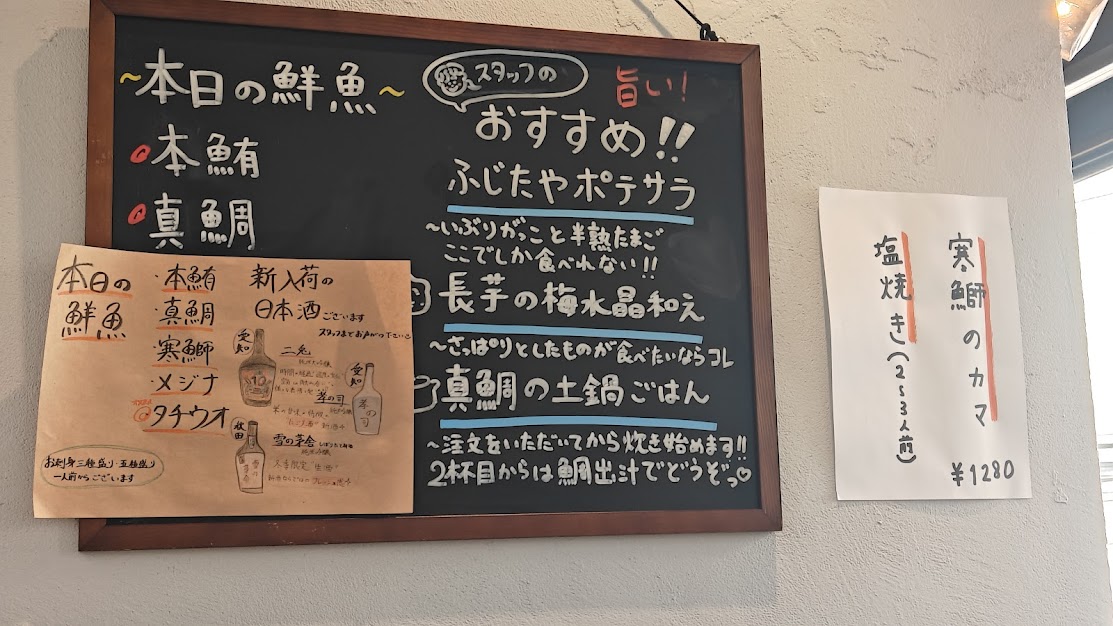 ~本日の鮮魚~
本鮪
真鯛
スタッフの
旨い!
おすすめ!!
ふじたやポテサラ
~いぶりがっこと半熟たまご
ここでしか食べれない!!
長芋の梅水晶和え
~さっぱりとしたものが食べたいならコレ
真鯛の土鍋ごはん
~注文をいただいてから炊き始めます!!
2杯目からは鯛出汁でどうぞっ♡
本日の
鮮魚
・本鮪
・真鯛
・寒鰤
・メジナ
タチウオ
お刺身三種盛り・五種盛り
一人前からございます
新入荷の
日本酒ございます
スタッフまでお声がけ下さい
愛知
二兎
愛知
萃の司
秋田
雪の茅舎
寒鰤のカマ
塩焼き(2~3人前)
¥1280